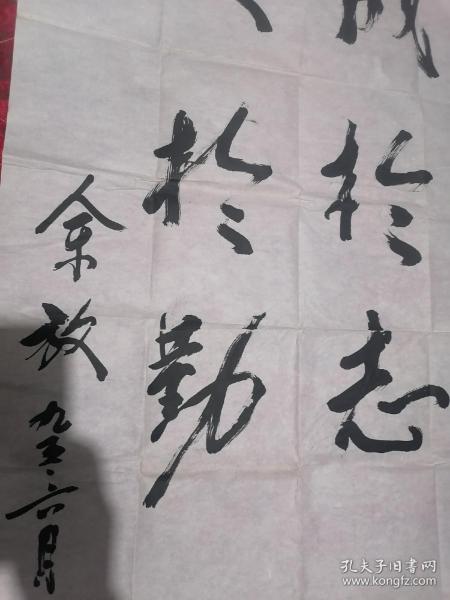 成於志
於勤
余放 九三.六月
孔夫子旧书网
www.kongfz.com